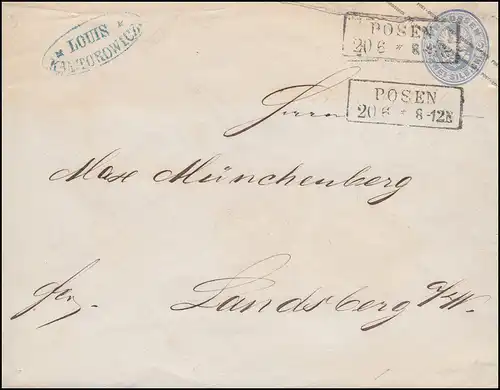 LOUIS
KANTOROWICZ
POSEN
20 6 * 8-12N
PREUSSEN
ZWEI SILB. GR.
POSEN
20 6 * 8-12N
Herrn
Max Münchenberg
Landsberg a/W.